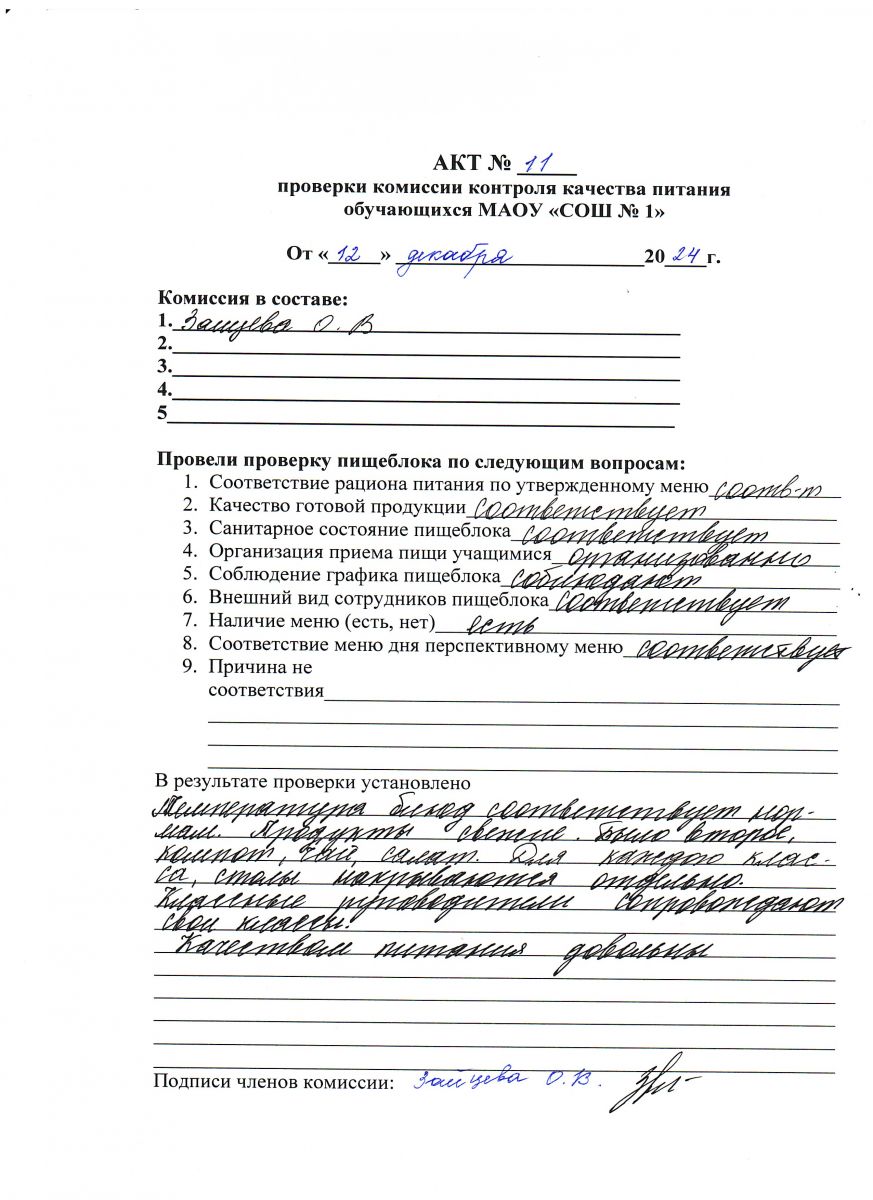 АКТ № 11
проверки комиссии контроля качества питания
обучающихся МАОУ «СОШ № 1»
От «12» декабря 2024г.
Комиссия в составе:
1. Зайцева О. В
2.
3.
4.
5
Провели проверку пищеблока по следующим вопросам:
1. Соответствие рациона питания по утвержденному меню соотв-т
2. Качество готовой продукции соответствует
3. Санитарное состояние пищеблока соответствует
4. Организация приема пищи учащимися организованно
5. Соблюдение графика пищеблока соблюдают
6. Внешний вид сотрудников пищеблока соответствует
7. Наличие меню (есть, нет) есть
8. Соответствие меню дня перспективному меню соответствует
9. Причина не
соответствия
В результате проверки установлено
Температура блюд соответствует нор-
мам. Продукты свежие. Было второе,
компот, чай, салат. Для каждого клас-
са, столы накрываются отдельно.
Классные руководители сопровождают
свои классы.
Качеством питания довольны
Подписи членов комиссии: Зайцева О.В.